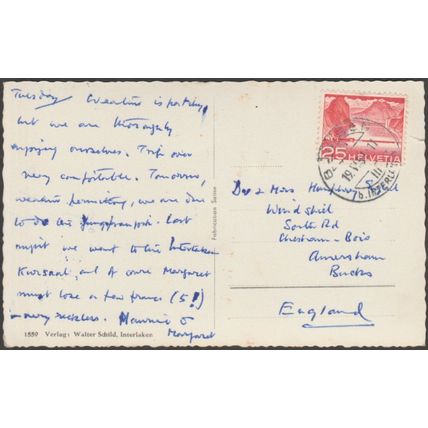 Tuesday Weather is patchy,
but we are thoroughly
enjoying ourselves. Trip over
very comfortable. Tomorrow,
weather permitting, we are due
to do the Jungfraujoch. Last
night we went to the Interlaken
Kursaal, and of course Margaret
must lose a few francs (5!)
in very reckless. Maurice &
Margaret
1559 Verlag: Walter Schild, Interlaken
Fabrication Suisse
25 HELVETIA
Dr & Mrs Humphrey
Windshiel
South Rd
Chesham-Bois
Amersham
Bucks
England